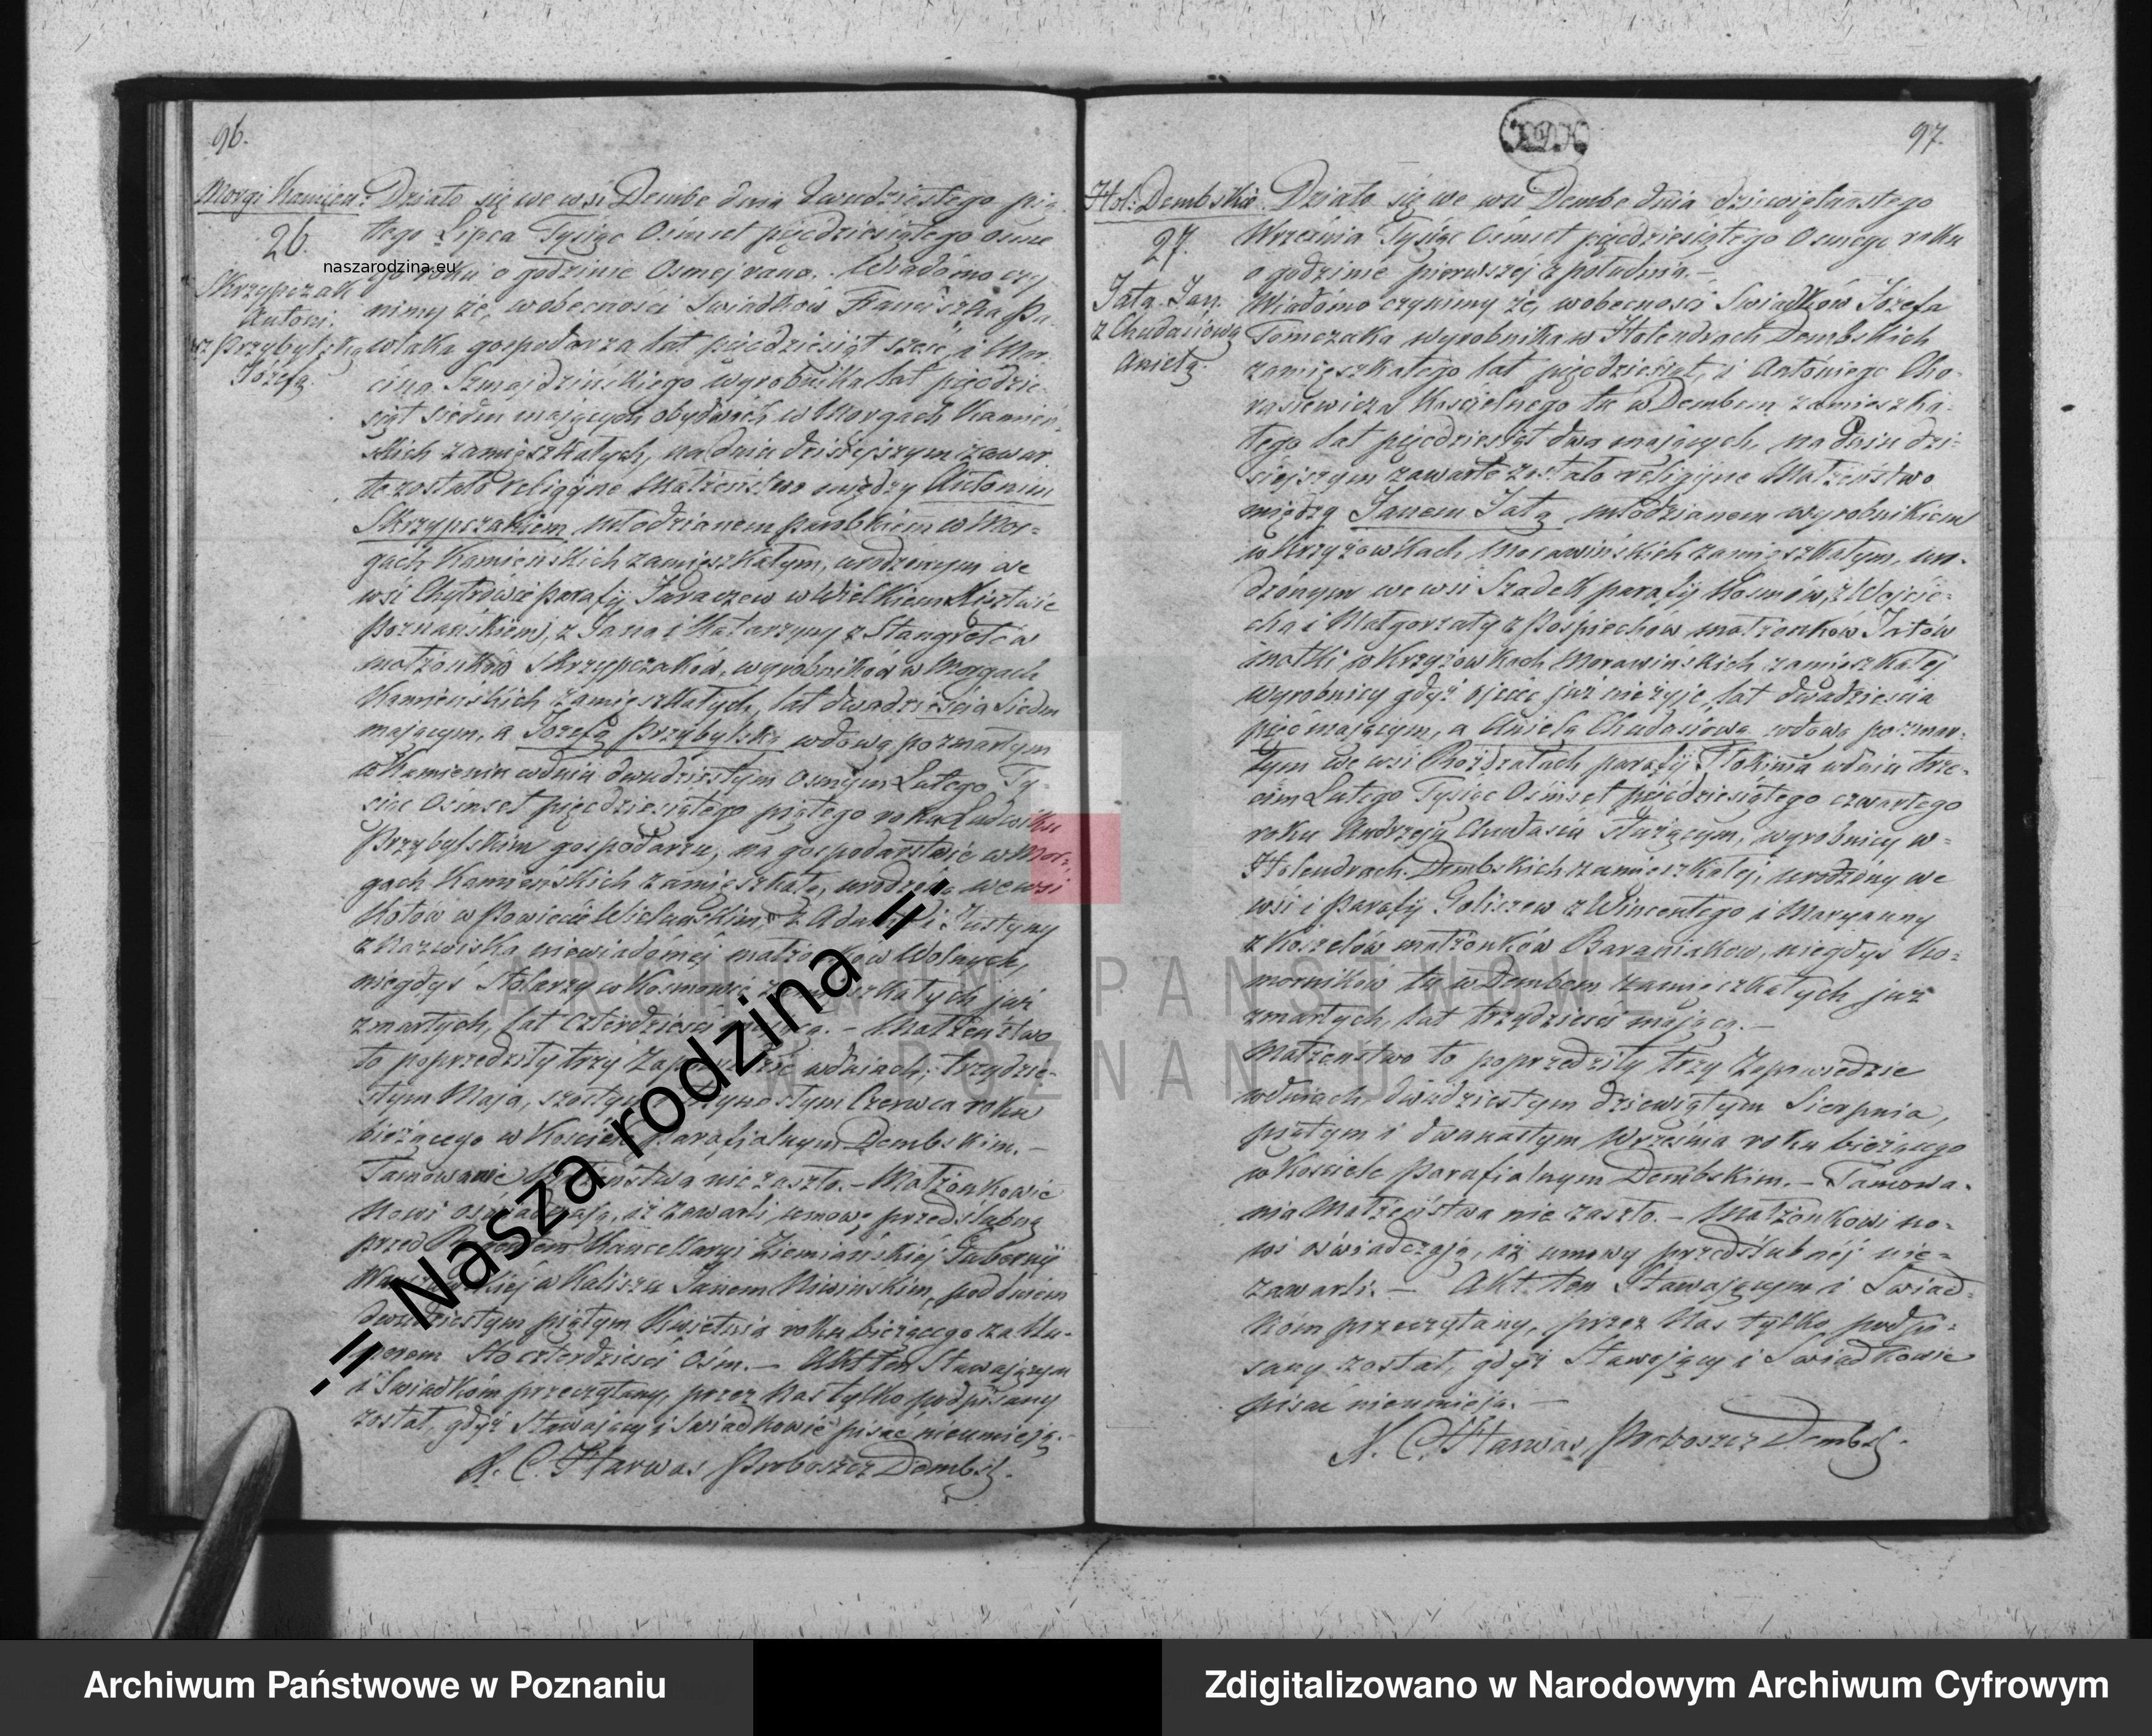 96.
Morgi Kamień:
26.
Skrzypczak
Antoni.
z Przybylską
Józefą.
Działo się we wsi Dembe dnia dwudziestego pią-
tego Lipca Tysiąc Ośmset pięćdziesiątego osme
go roku o godzinie Osmej rano. Wiadomo czy
nimy że, wobecności Swiadków Franciszka Pa
wlaka gospodarza lat pięćdziesiąt sześć, i Mar-
cina Szmajdzińskiego wyrobnika lat pięćdzie-
siąt siedm mających obydwóch w Morgach Kamień-
skich zamieszkałych, na dniu dzisiejszym zawar
te zostało religijne Małżeństwo między Antonim
Skrzypczakiem, młodzianem parobkiem w Mor-
gach Kamieńskich zamieszkałym, urodzonym we
wsi Chytrowie parafij Jaraczew w Wielkiem Księstwie
Poznańskiem, z Jana i Katarzyny z Stangretów
małżonków Skrzypczaków, wyrobników w Morgach
Kamieńskich zamieszkałych, lat dwadzieścia siedm
mającym, a Józefą Przybylską wdową po zmarłym
w Kamieniu w dniu dwudziestym osmym Lutego Ty-
siąc Ośmset pięćdziesiątego piątego roku Ludwiku
Przybylskim gospodarzu, na gospodarstwie w Mor-
gach Kamieńskich zamieszkałą, urodzoną we wsi
Kotów w Powiecie Wieluńskim, z Adama i Justyny
z nazwiska niewiadomej małżonków Wolnych,
niegdyś Stolarzy w Kosmowie zamieszkałych już
zmarłych, lat czterdzieści mającą. – Małżeństwo
to poprzedziły trzy Zapowiedzie w dniach; trzydzie-
stym Maja, szóstym i trzynastym Czerwca roku
bieżącego w Kościele Parafialnym Dembskim. –
Tamowanie Małżeństwa nie zaszło. – Małżonkowie
Nowi oświadczają, iż zawarli umowę przedślubną
przed Rejentem Kancellaryi Ziemiańskiej Gubernii
Warszawskiej w Kaliszu Janem Niwinskim, pod dniem
dwudziestym piątym Kwietnia roku bieżącego za Nu-
merem Sto czterdzieści Ośm. – Akt ten Stawającym
i Swiadkóm przeczytany, przez Nas tylko podpisany
został, gdyż Stawający i Swiadkowie pisać nieumieją. –
X. C. Harwas Proboszcz Dembsk.
97.
Hol: Dembskie.
27.
Jata Jan.
z Chudasiową
Anielą.
Działo się we wsi Dembe dnia dziewiętnastego
Września Tysiąc Ośmset pięćdziesiątego Osmego roku
o godzinie pierwszej z południa. –
Wiadomo czynimy że, wobecności Swiadków Józefa
Tomczaka wyrobnika w Holendrach Dembskich
zamieszkałego lat pięćdziesiąt, i Antoniego Cho-
rasiewicza Kościelnego tu w Dembem zamieszka-
łego lat pięćdziesiąt dwa mających, na dniu dzi-
siejszym zawarte zostało religijne Małżeństwo
między Janem Jatą młodzianem wyrobnikiem
w Krzyżówkach Morawińskich zamieszkałym, uro-
dzonym we wsi Szadek parafij Kosmów, z Wojcie-
cha i Małgorzaty z Pośpiechów małżonków Jatów
matki w Krzyżówkach Morawińskich zamieszkałej
wyrobnicy gdyż ojciec już nieżyje, lat dwadzieścia
pięć mającym, a Anielą Chudasiową wdową po zmar-
łym we wsi Rożdżałach parafij Tłokinia w dniu trze-
cim Lutego Tysiąc Ośmset pięćdziesiątego czwartego
roku Andrzeju Chudasiu służącym, wyrobnicy w
Holendrach Dembskich zamieszkałej, urodzony we
wsi i parafij Goliszew z Wincentego i Maryanny
z Koszelów małżonków Baraniaków, niegdyś Ko-
morników tu w Dembem zamieszkałych już
zmarłych, lat trzydzieści mającą. –
Małżeństwo to poprzedziły trzy Zapowiedzie
w dniach, dwudziestym dziewiątym Sierpnia,
piątym i dwunastym Września roku bieżącego
w Kościele Parafialnym Dembskim. – Tamowa-
nia Małżeństwa nie zaszło. – Małżonkowi no-
wi oświadczają, iż umowy przedślubnéj nie-
zawarli. – Akt ten Stawającym i Swiad-
kóm przeczytany, przez Nas tylko podpi-
sany został, gdyż Stawający i Swiadkowie
pisać nieumieją. –
X. C. Harwas Proboszcz Dembsk.
naszarodzina.eu
-= Nasza rodzina =-
ARCHIWUM PAŃSTWOWE
W POZNANIU
Archiwum Państwowe w Poznaniu
Zdigitalizowano w Narodowym Archiwum Cyfrowym